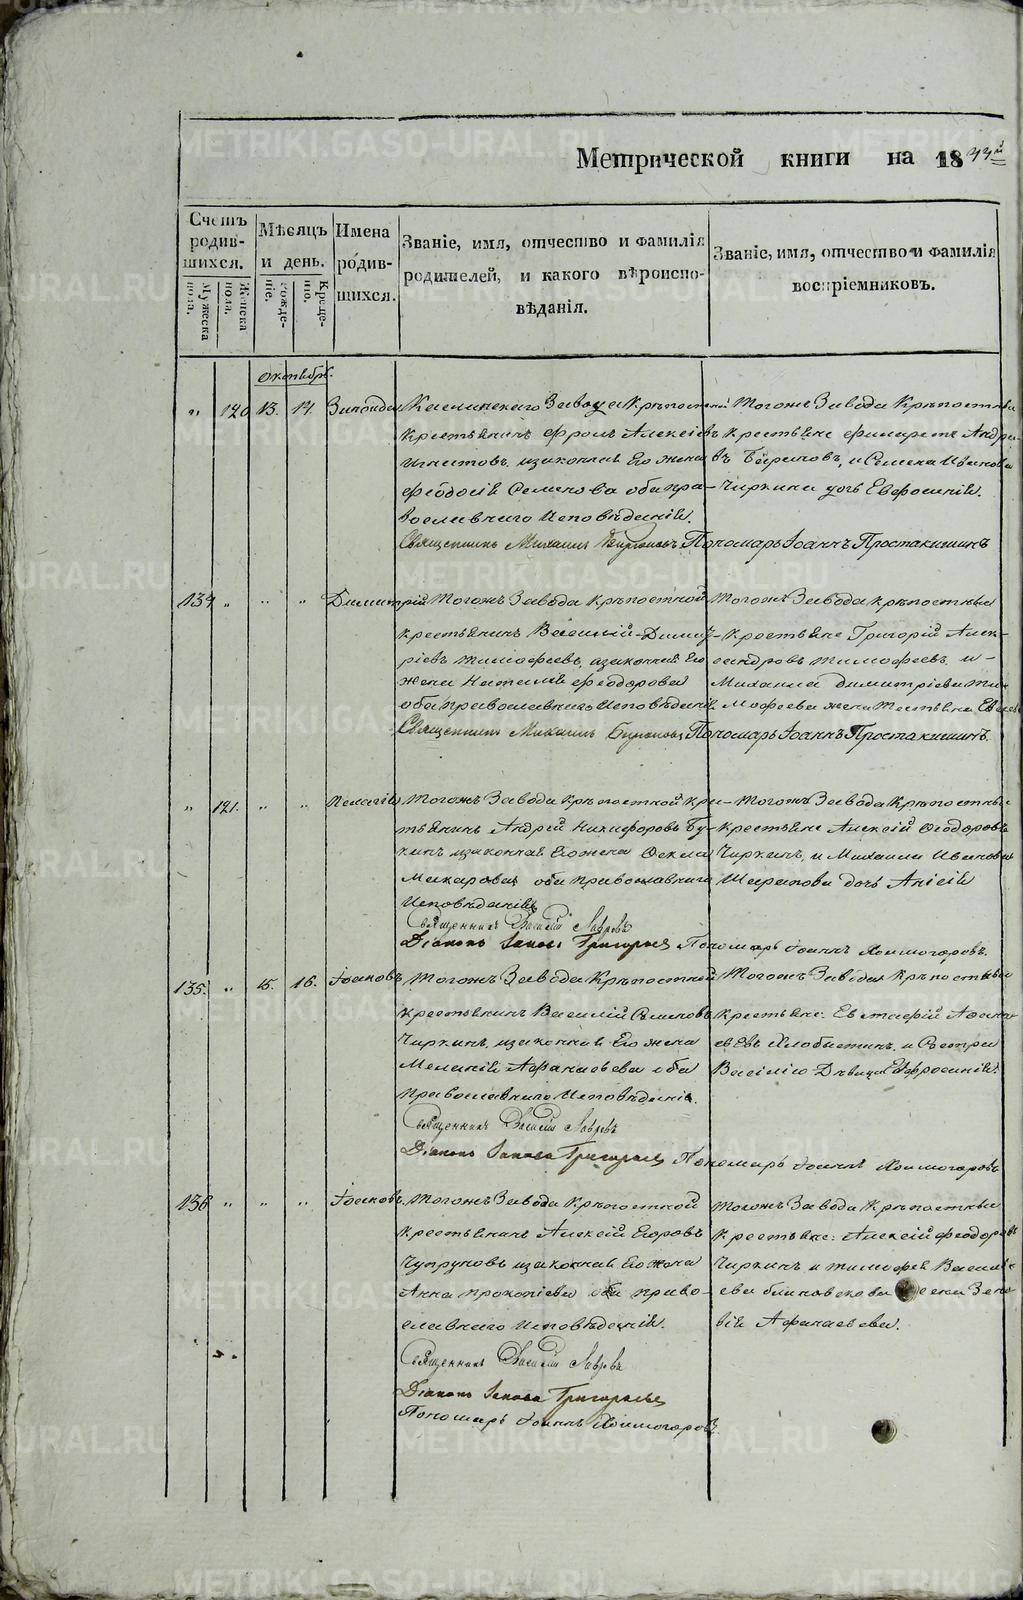 Метрической книги на 1844й
Счетъ родив- шихся.
Мужеска пола.
Женска пола.
Мѣсяцъ и день.
Рожде- ніе.
Креще- ніе.
Имена родив- шихся.
Званіе, имя, отчество и фамилія
родителей, и какого вѣроиспо-
вѣданія.
Званіе, имя, отчество и фамилія
воспріемниковъ.
Октябрь.
" 120 13. 14.
Каслинскаго Завода крѣпостной
крестьянинъ Фролъ Алексіевъ
Игнатовъ, и законная Его жена
Феодосія Семенова оба пра-
вославнаго Исповѣданія.
Священникъ Михаилъ Бирюковъ.
Тогожъ Завода Крѣпостные
крестьяне Филаретъ Андре-
евъ и Семена Иванова
Чиркина дочь Евфросинія.
Пономарь Іоаннъ Простакишинъ
134 " " " Димитрій
Тогожъ Завода крѣпостной
крестьянинъ Василій Димит-
ріевъ Тимофеевъ, и законная Его
жена Наталія Феодорова
оба православнаго Исповѣданія
Священникъ Михаилъ Бирюковъ
Тогожъ Завода крѣпостные
крестьяне Григорій Алек-
сандровъ Тимофеевъ, и
Михаила Димитріева Ти-
мофеева жена
Пономарь Іоаннъ Простакишинъ.
" 121. " " Пелагія
Тогожъ Завода Крѣпостной кре-
стьянинъ Андрей Никифоровъ
и законная Его жена Фекла
Макарова оба православнаго
Исповѣданія
Священникъ Василій Лавровъ
Діаконъ Іаковъ Григорьевъ
Тогожъ Завода Крѣпостные
крестьяне Алексій Феодоровъ
Чиркинъ, и Михаила Иванова
Шарапова дочь Анисія
Пономарь Іоаннъ Холмогоровъ.
135. " 15. 16. Іаковъ
Тогожъ Завода Крѣпостной
крестьянинъ Василій Семеновъ
Чиркинъ, и законная Его жена
Меланія Афанасьева оба
православнаго Исповѣданія.
Священникъ Василій Лавровъ
Діаконъ Іаковъ Григорьевъ
Тогожъ Завода Крѣпостные
крестьяне: Евстафій Афанась-
евъ и Сестра
Василію Дѣвица Евфросинія.
Пономарь Іоаннъ Холмогоровъ
136 " " " Іаковъ.
Тогожъ Завода Крѣпостной
крестьянинъ Алексій Егоровъ
Чупруновъ и законная Его жена
Анна Прокопіева оба право-
славнаго Исповѣданія.
Священникъ Василій Лавровъ
Діаконъ Іаковъ Григорьевъ
Пономарь Іоаннъ Холмогоровъ.
Тогожъ Завода Крѣпостные
Крестьяне: Алексій Феодоровъ
Чиркинъ и Тимофея Василь-
ева Блиновскова жена Зено-
вія Афанасьева.
METRIKI.GASO-URAL.RU